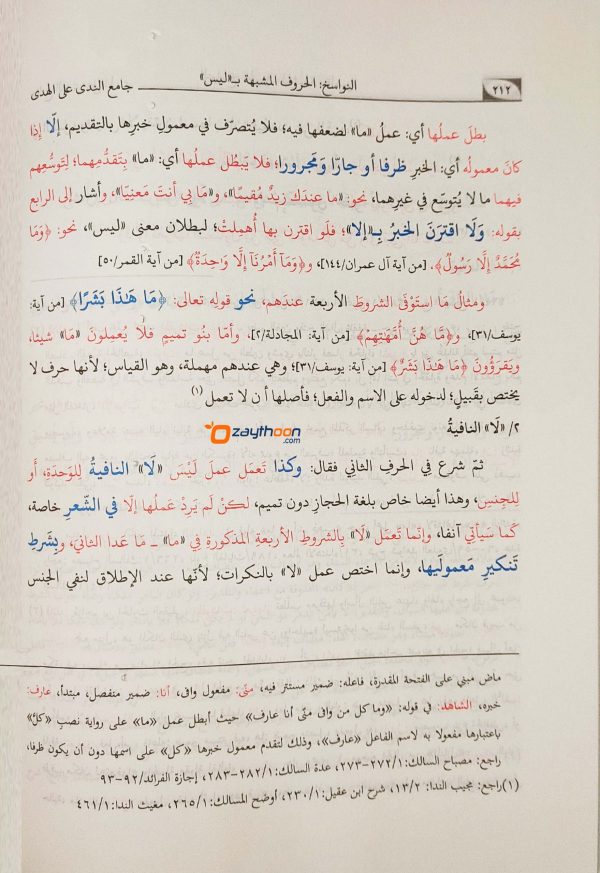 ٢١٢
النواسخ: الحروف المشبهة بـ«ليس»
جامع الندى على الهدى
بطلَ عملُها أي: عملُ «ما» لضعفها فيه؛ فلا يُتصرّف في معمولِ خبرِها بالتقديم، إلّا إذا
كانَ معمولُه أي: الخبرِ ظرفا أو جارًا وَمَجرورا؛ فلا يَبطُل عملُها أي: «ما» بِتَقدُّمِهما؛ لِتَوسُّعِهم
فيهما ما لا يُتوسّع في غيرهما، نحو: «ما عندك زيدٌ مُقيمًا»، و«مَا بي أنتَ مَعنِيًا»، وأشار إلى الرابع
بقوله: وَلَا اقترَنَ الخبرُ بِـ«إلا»؛ فلَو اقترن بها أُهمِلتْ؛ لبطلان معنى «ليس»، نحو: ﴿وَمَا
مُحَمَّدٌ إِلَّا رَسُولٌ﴾. [من آية آل عمران/١٤٤]، و﴿وَمَآ أَمْرُنَآ إِلَّا وَٰحِدَةٌ﴾ [من آية القمر/٥٠]
ومثالُ مَا استَوْفَى الشروطَ الأربعة عندَهم، نحو قولِه تعالى: ﴿مَا هَٰذَا بَشَرًا﴾ [من آية:
يوسف/٣١]، و﴿مَّا هُنَّ أُمَّهَٰتِهِمْ﴾ [من آية: المجادلة/٢]، وأمّا بنُو تميمٍ فلا يُعملونَ «مَا» شيئا،
ويَقرؤُونَ ﴿مَا هَٰذَا بَشَرٌ﴾ [من آية: يوسف/٣١]؛ وهي عندهم مهملة، وهو القياس؛ لأنها حرف لا
يختص بقَبيلٍ؛ لدخوله على الاسم والفعل؛ فأصلها أن لا تعمل (١)
٢/ «لَا» النافيةُ
Ozaythoon.com
ثمّ شرع في الحرفِ الثاني فقال: وكذا تَعمَل عملَ لَيْسَ «لَا» النافيةُ للوَحدَةِ، أو
لِلجِنسِ، وهذا أيضا خاص بلغة الحجازِ دون تميم، لكنْ لَم يَرِدْ عَملُها إلّا في الشّعرِ خاصة،
كَما سيَأتي آنفا، وإنّما تَعمَل «لَا» بِالشروطِ الأربعة المذكورةِ في «ما» ـ مَا عَدا الثانيَ، وبِشَرطِ
تَنكيرِ مَعمولَيها، وإنما اختص عمل «لا» بالنكرات؛ لأنّها عند الإطلاق لنفي الجنس
ماض مبني على الفتحة المقدرة، فاعله: ضمير مستتر فيه، منًى: مفعول وافى، أنا: ضمير منفصل، مبتدأ، عارف:
خبره، الشّاهد: في قوله: «وما كل من وافى منًى أنا عارف» حيث أبطل عمل «ما» على رواية نصب «كلَّ»
باعتبارها مفعولا به لاسم الفاعل «عارف»، وذلك لتقدم معمول خبرها «كل» على اسمها دون أن يكون ظرفا،
راجع: مصباح السالك:٢٧٢/١-٢٧٣، عدة السالك:٢٨٢/١-٢٨٣، إجازة الفرائد/٩٢-٩٣
(١)راجع: مجيب الندا: ١٣/٢، شرح ابن عقيل:٢٣٠/١، أوضح المسالك:٢٦٥/١، مغيث الندا:٤٦١/١